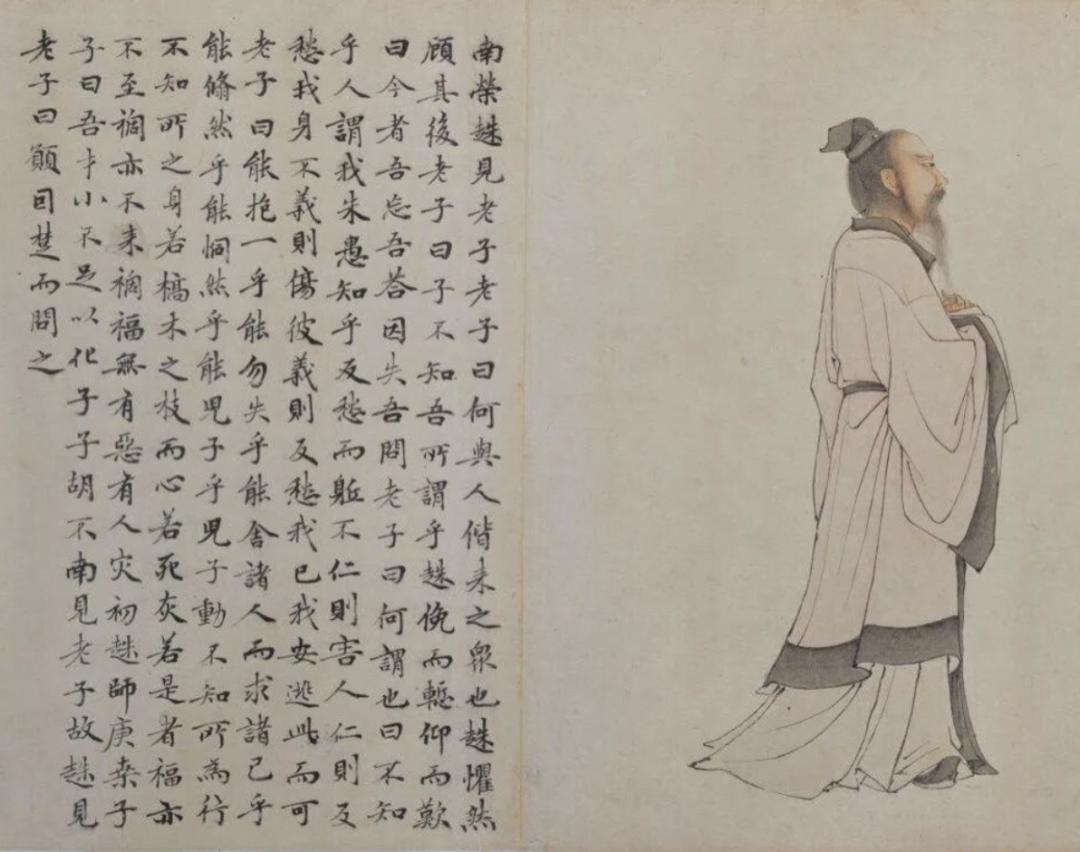 南榮趎見老子老子曰何與人偕来之衆也趎懼然
顧其後老子曰子不知吾所謂乎趎俛而慙仰而歎
曰今者吾忘吾荅因失吾問老子曰何謂也曰不知
乎人謂我朱愚知乎反愁而躯不仁則害人仁則反
愁我身不義則傷彼義則反愁我已我安逃此而可
老子曰能抱一乎能勿失乎能舍諸人而求諸己乎
能翛然乎能恫然乎能兒子乎兒子動不知所為行
不知所之身若槁木之枝而心若死灰若是者福亦
不至禍亦不来禍福無有惡有人灾初趎師庚桑子
子曰吾才小不足以化子子胡不南見老子故趎見
老子曰願回楚而問之